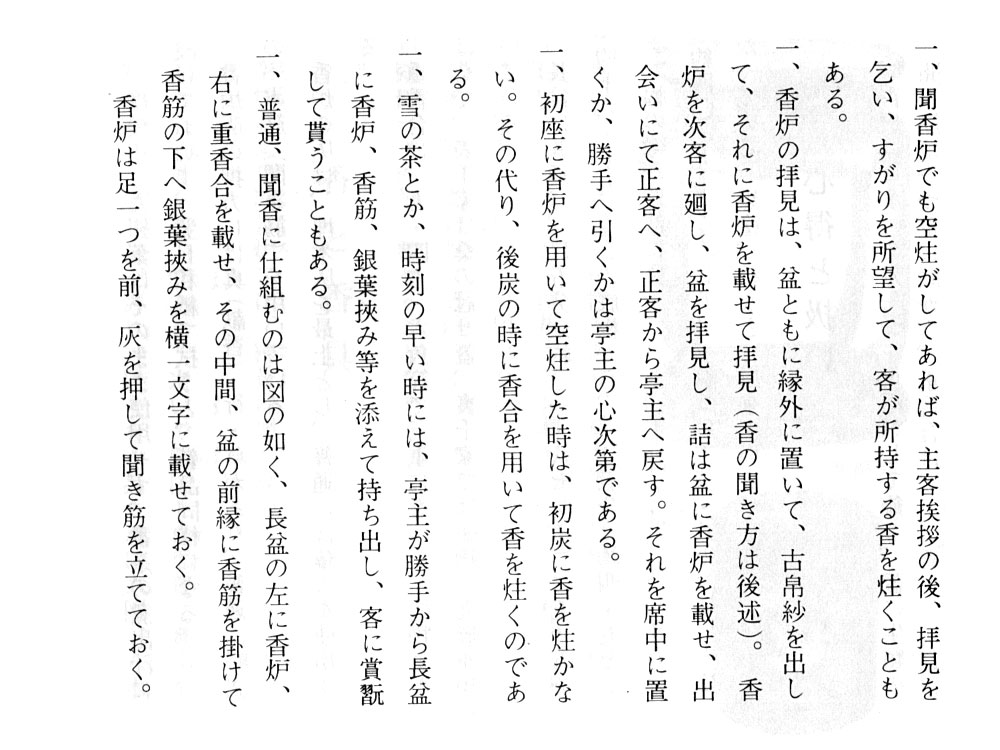 一、聞香炉でも空炷がしてあれば、主客挨拶の後、拝見を
乞い、すがりを所望して、客が所持する香を炷くことも
ある。
一、香炉の拝見は、盆ともに縁外に置いて、古帛紗を出し
て、それに香炉を載せて拝見（香の聞き方は後述）。香
炉を次客に廻し、盆を拝見し、詰は盆に香炉を載せ、出
会いにて正客へ、正客から亭主へ戻す。それを席中に置
くか、勝手へ引くかは亭主の心次第である。
一、初座に香炉を用いて空炷した時は、初炭に香を炷かな
い。その代り、後炭の時に香合を用いて香を炷くのであ
る。
一、雪の茶とか、時刻の早い時には、亭主が勝手から長盆
に香炉、香筋、銀葉挟み等を添えて持ち出し、客に賞翫
して貰うこともある。
一、普通、聞香に仕組むのは図の如く、長盆の左に香炉、
右に重香合を載せ、その中間、盆の前縁に香筋を掛けて
香筋の下へ銀葉挟みを横一文字に載せておく。
香炉は足一つを前、灰を押して聞き筋を立てておく。